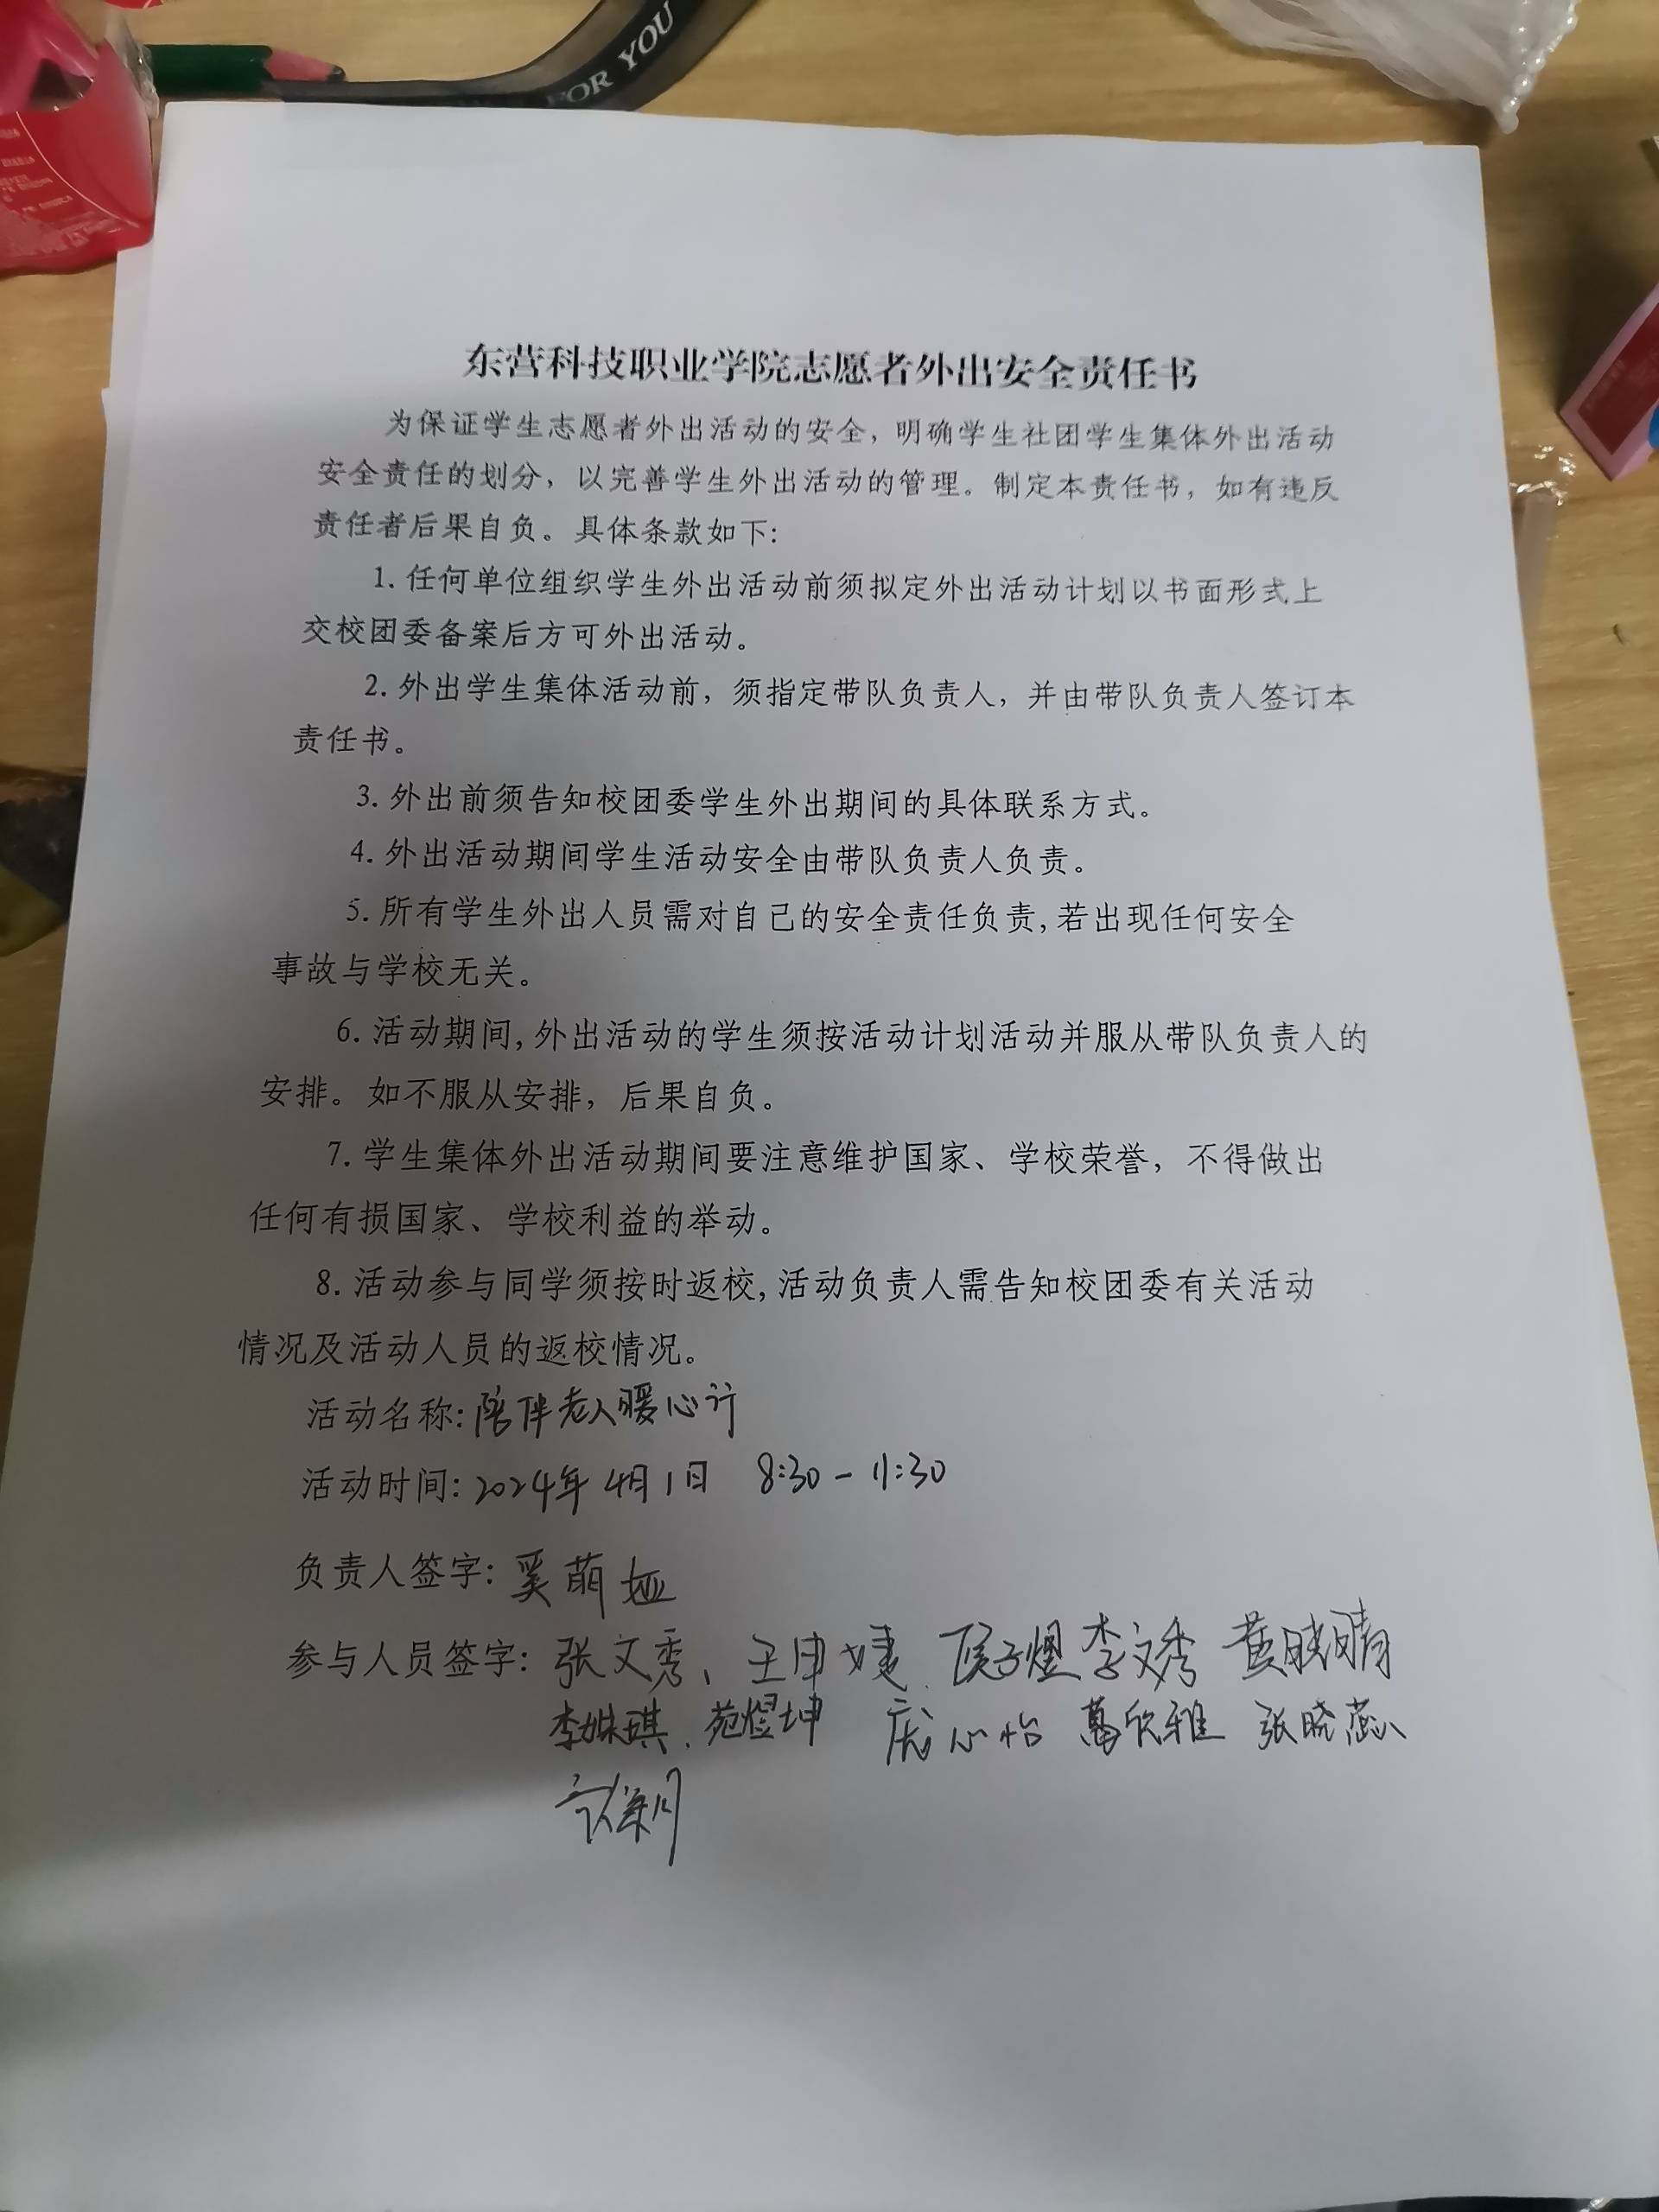 FOR YOU
东营科技职业学院志愿者外出安全责任书
为保证学生志愿者外出活动的安全，明确学生社团学生集体外出活动
安全责任的划分，以完善学生外出活动的管理。制定本责任书，如有违反
责任者后果自负。具体条款如下：
1. 任何单位组织学生外出活动前须拟定外出活动计划以书面形式上
交校团委备案后方可外出活动。
2. 外出学生集体活动前，须指定带队负责人，并由带队负责人签订本
责任书。
3. 外出前须告知校团委学生外出期间的具体联系方式。
4. 外出活动期间学生活动安全由带队负责人负责。
5. 所有学生外出人员需对自己的安全责任负责,若出现任何安全
事故与学校无关。
6. 活动期间,外出活动的学生须按活动计划活动并服从带队负责人的
安排。如不服从安排，后果自负。
7. 学生集体外出活动期间要注意维护国家、学校荣誉，不得做出
任何有损国家、学校利益的举动。
8. 活动参与同学须按时返校,活动负责人需告知校团委有关活动
情况及活动人员的返校情况。
活动名称: 陪伴老人暖心行
活动时间: 2024年4月1日 8:30-11:30
负责人签字: 奚萌娅
参与人员签字: 张文秀、王申婕 侯子煜 李文秀 黄晓晴
李姝琪 苑煜坤 庞心怡 葛欣雅 张晓蕊